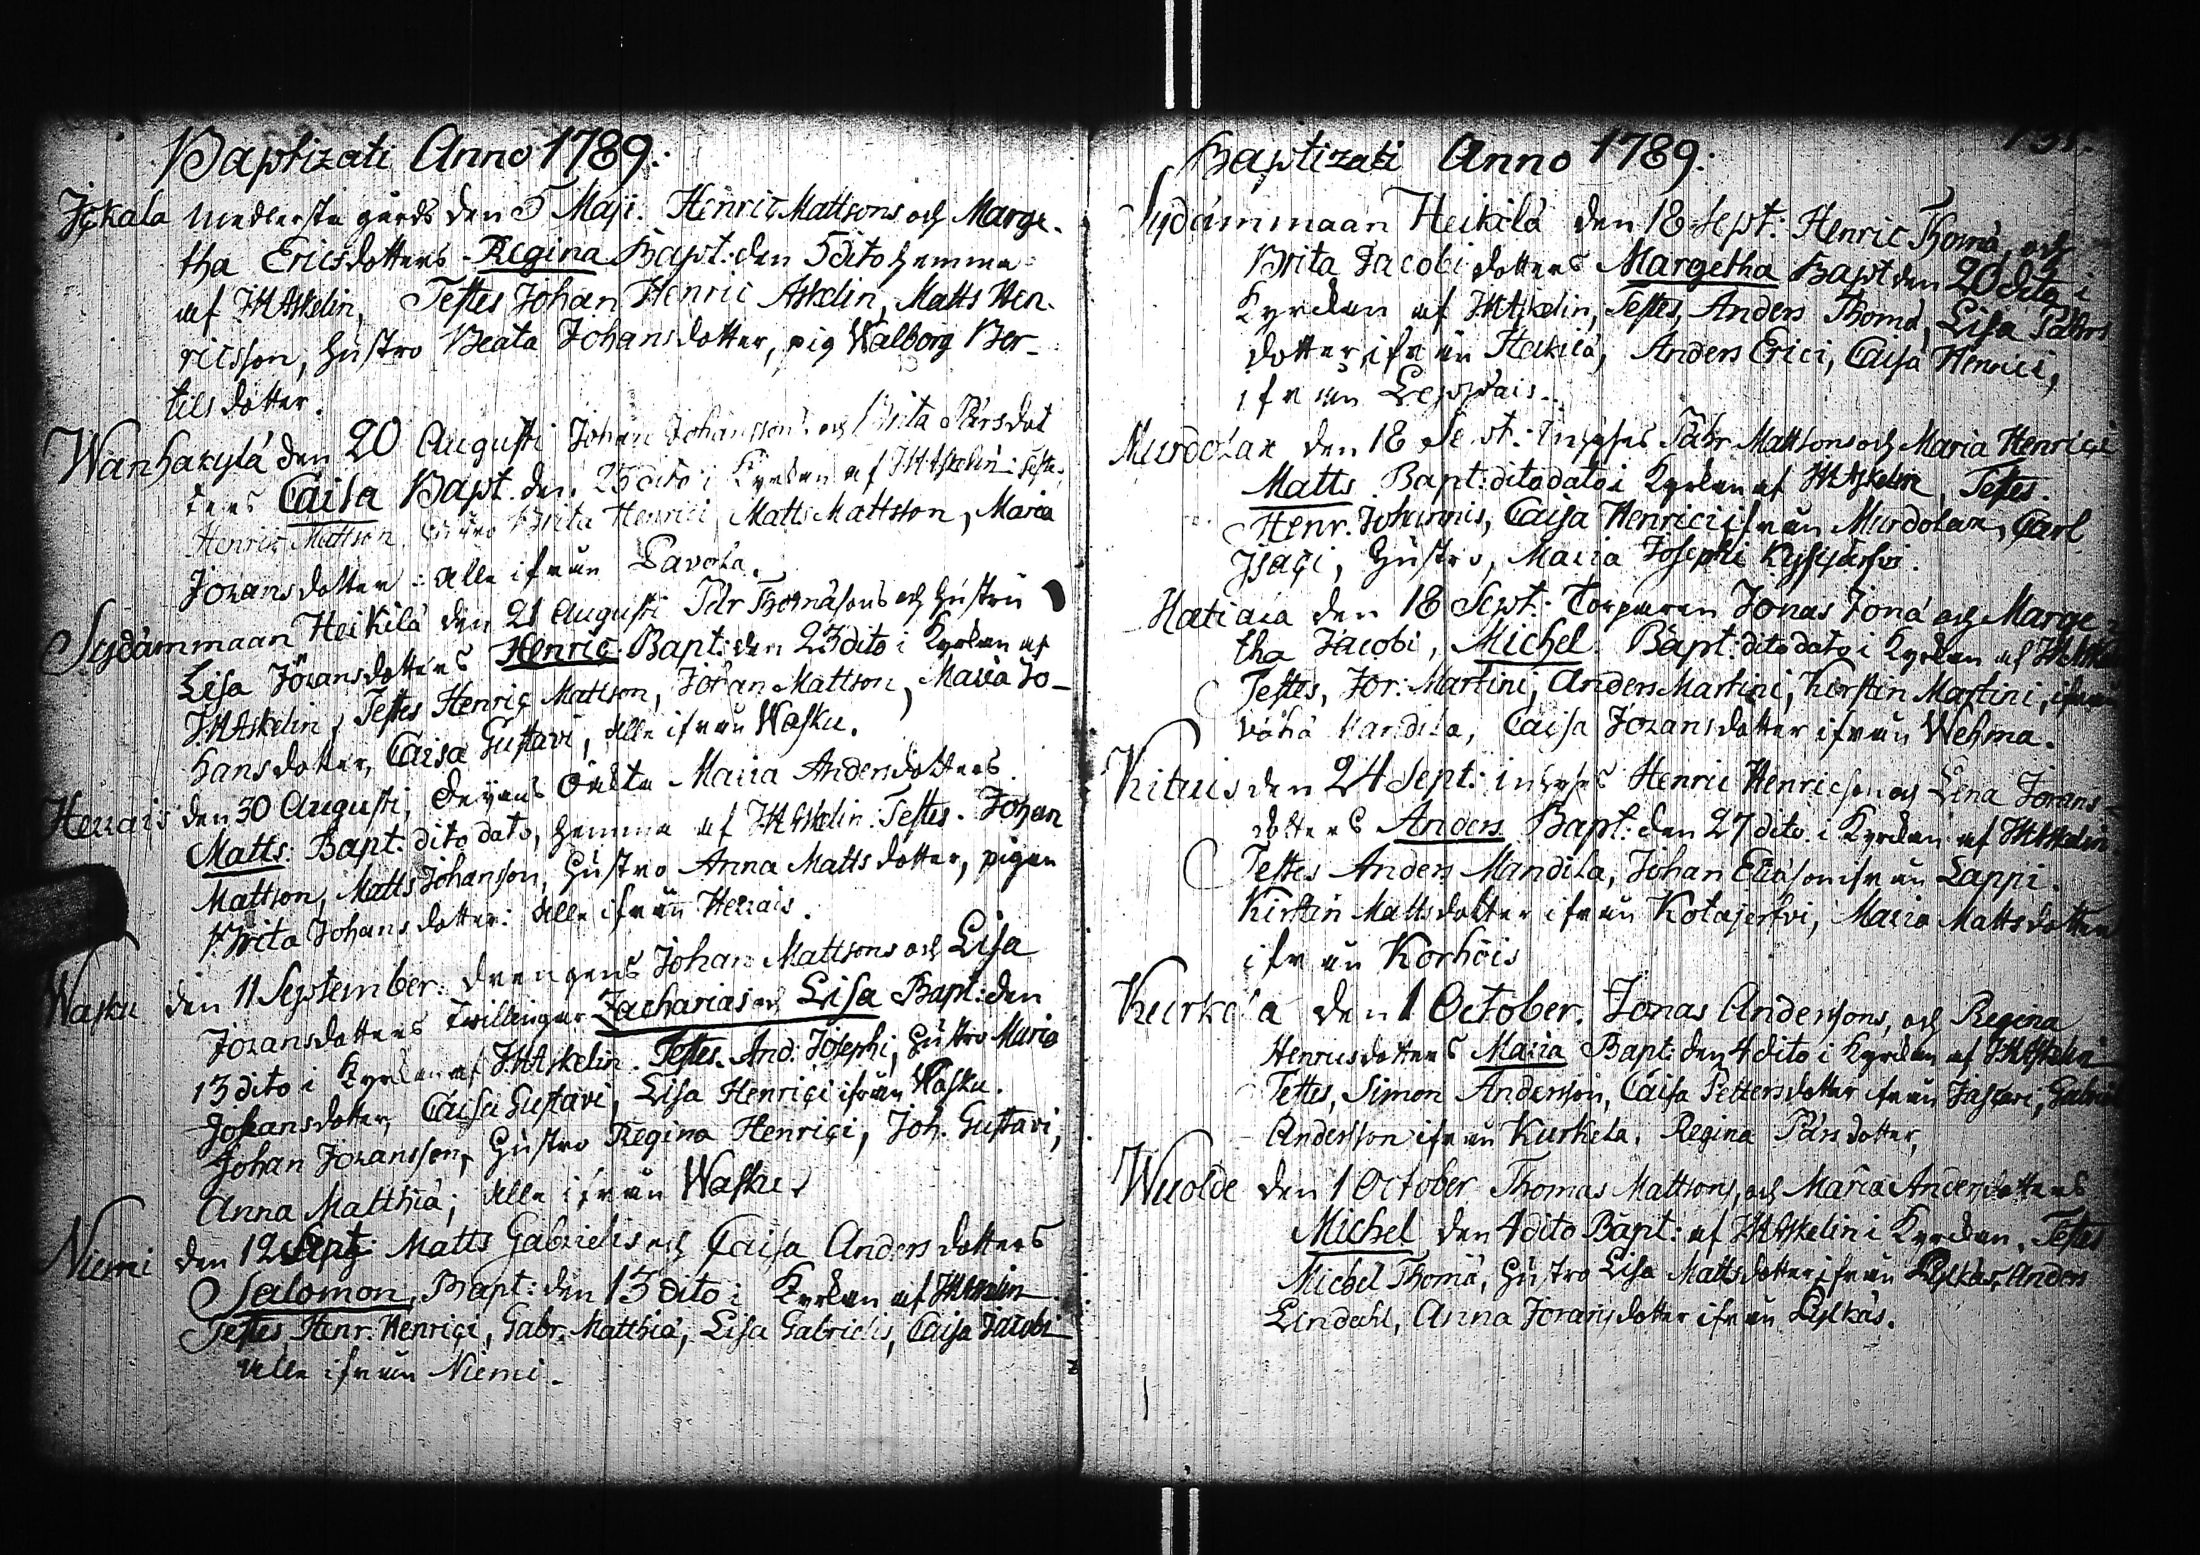 Baptizati Anno 1789:
Jckala medlersta gårds den 5 Maji. Henric Mattsons och Marge-
tha Ericsdotters Regina Bapt: den 5 dito hemma
af JHAskelin, Testes Johan Henric Askelin, Matts Hen-
ricsson, hustro Beata Johansdotter, pig Walborg Ber-
tilsdotter.
Wanhakylä den 20 Augusti Johan Johansson och Brita Pärsdot
ters Caisa Bapt. den 23 dito i Kyrkan af JHAskelin Testes
Henric Mattson, hustro Brita Henrici, Matts Mattsson, Maria
Jöransdotter: alle ifrån Pavola.
Sydänmaan Heikilä den 21 Augusti Pär Thomäsons och hustru
Lisa Jöransdotters Henric Bapt: den 23 dito i Kyrkan af
JHAskelin, Testes Henric Mattson, Jöran Mattson, Maria Jo-
hansdotter, Caisa Gustavi, alle ifrån Wasku.
Herrais den 30 Augusti, Maria Andersdotters
Matts. Bapt. dito dato, hemma af JHAskelin. Testes. Johan
Mattson, Matts Johanson, hustro Anna Mattsdotter, pigan
Brita Johansdotter: alle ifrån Herrais.
Wasku den 11 September. drengens Johan Mattsons och Lisa
Jöransdotters twillingar Zacharias och Lisa Bapt: den
13 dito i Kyrkan af JHAskelin. Testes. And: Josephi, hustro Maria
Johansdotter, Caisa Gustavi, Lisa Henrici ifrån Wasku.
Johan Jöransson, hustro Regina Henrici, Joh. Gustavi,
Anna Matthiä; alle ifrån Wasku.
Niemi den 12 Sept: Matts Gabrielis och Caisa Andersdotters
Salomon, Bapt: den 13 dito i Kyrkan af JHAskelin.
Testes Henr. Henrici, Gabr. Matthiä, Lisa Gabrielis, Caisa Jacobi
alle ifrån Niemi.
135.
Baptizati Anno 1789:
Sydänmaan Heikilä den 18 Sept: Henric Thomä, och
Brita Jacobi dotters Margetha Bapt den 20 dito i
Kyrkan af JHAskelin, Testes, Anders Thomä, Lisa Pätters
dotter ifrån Heikilä, Anders Erici, Caisa Henrici,
ifrån Leppäis.
Murdolax den 18 Sept: inhyses Pähr Mattsons och Maria Henrici
Matts Bapt: dito dato i Kyrkan af JHAskelin, Testes.
Henr. Johannis, Caisa Henrici ifrån Murdolax, Carl
Isaci, hustro, Maria Josephi
Hatiala den 18 Sept: Torparen Jonas Jonä och Marge-
tha Jacobi, Michel. Bapt: dito dato i Kyrkan af JHAskelin
Testes, Jör: Martini, Anders Martini, Kirstin Martini, ifrån
vähä Mandila, Caisa Jöransdotter ifrån Wehma.
Kituis den 24 Sept: inhyses Henric Henricson och Lena Jörans-
dotters Anders Bapt: den 27 dito i Kyrkan af JHAskelin.
Testes Anders Mandila, Johan Eliäson ifrån Lappi.
Kirstin Mattsdotter ifrån Kotajerfvi, Maria Mattsdotter
ifrån Korhois
Kurkela den 1 October. Jonas Anderssons, och Regina
Henricsdotters Maria Bapt: den 4 dito i Kyrkan af JHAskelin
Testes, Simon Andersson, Caisa Pettersdotter ifrån Jaskari, Gabriel
Andersson ifrån Kurkela, Regina Pärsdotter,
Wuolde den 1 October Thomas Mattsons, och Maria Andersdotters
Michel den 4 dito Bapt: af JHAskelin i Kyrkan. Testes
Michel Thomä, hustro Lisa Mattsdotter ifrån Lylkäs, Anders
Lindahl, Anna Jöransdotter ifrån Lylkäs.